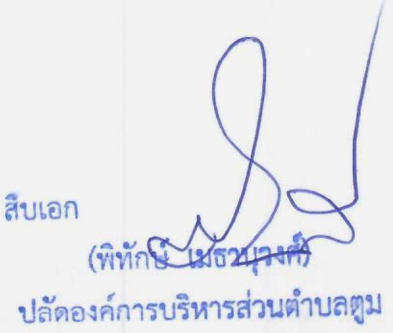 สิบเอก
(พิทักษ์ เมธานุวงศ์)
ปลัดองค์การบริหารส่วนตำบลตูม